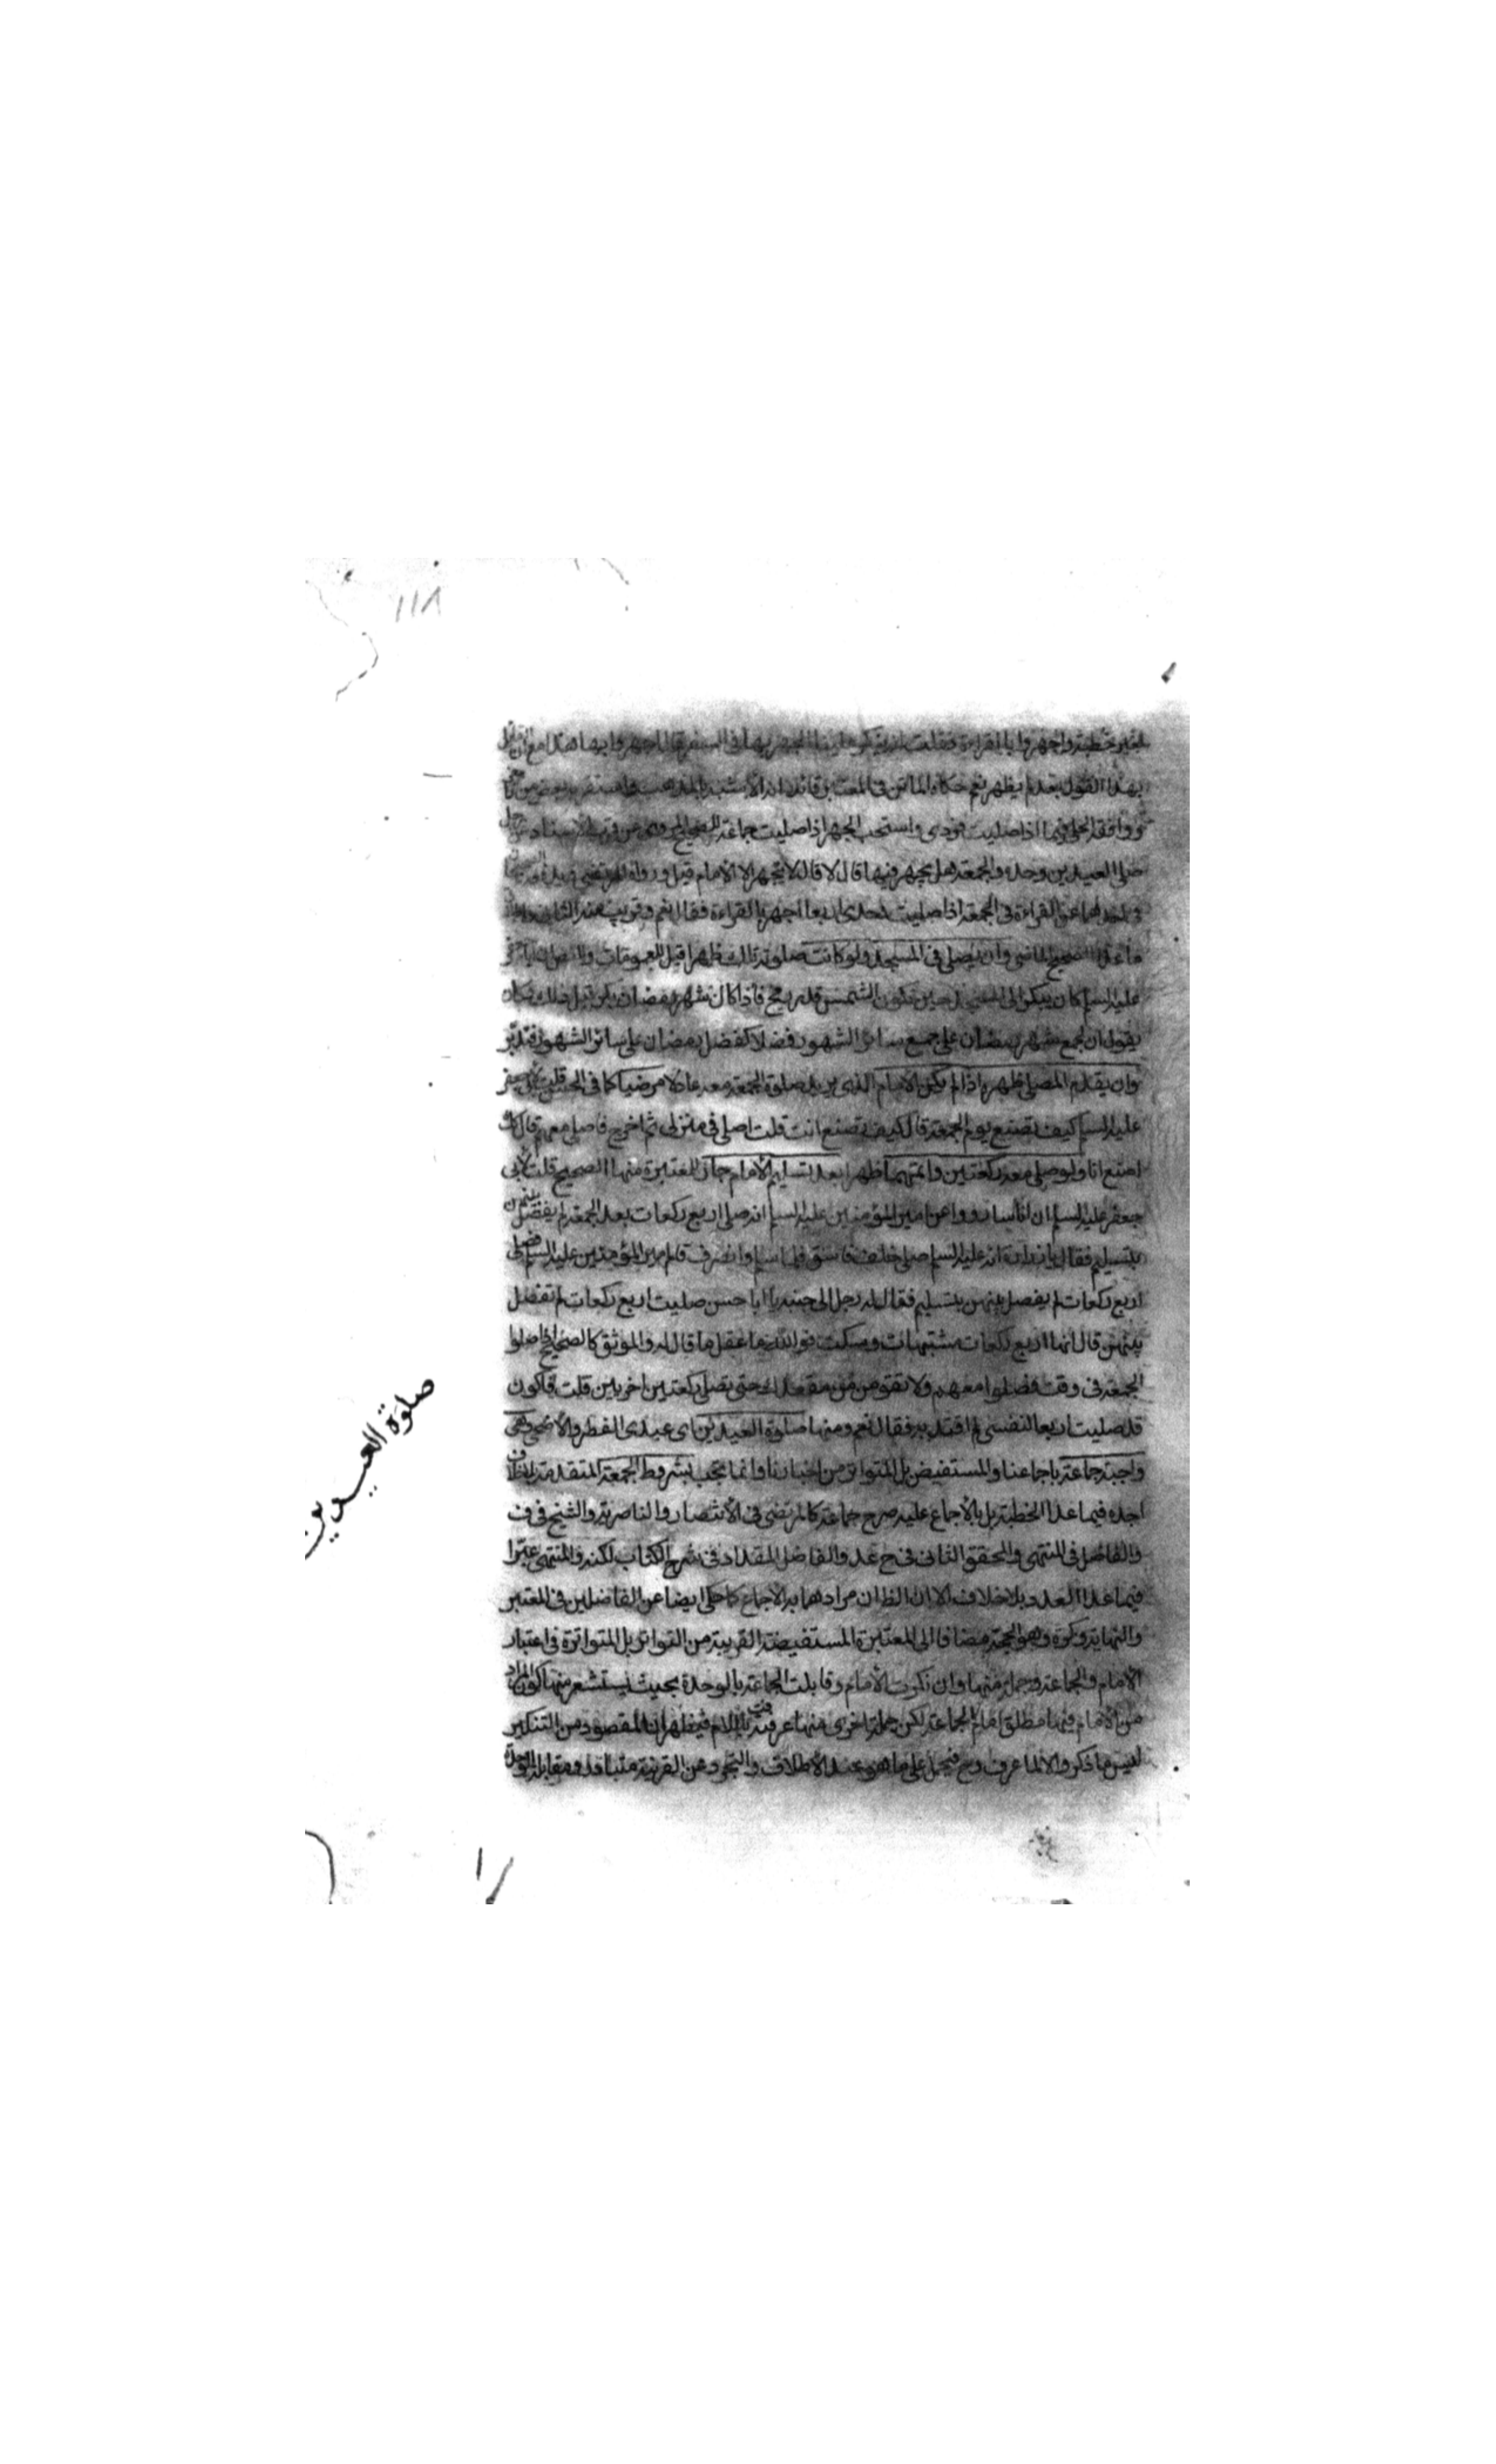 ١١٨
بغير خطبة واجهروا بالقراءة فقلت انه ينكر علينا الجهر بها في السفر فقال اجهروا بها هذا مع ان القائل
بهذا القول بعد لم يظهر نعم حكاه الماتن في المعتبر قائلا انه الاشبه بالمذهب
ووافقه الحلي فيما اذا صليت فرادى واستحب الجهر اذا صليت جماعة للصحيح المروي عن قرب الاسناد رجل
صلى العيدين وحده والجمعة هل يجهر فيها قال لا قال لا يجهر الا الامام قيل ورواه المرتضى
في احدهما عن القراءة في الجمعة اذا صليت وحدى اربعا اجهر بالقراءة فقال نعم وقريب منه الثاني
ما عدا الصحيح الماضي وان يصلى في المسجد ولو كانت صلوته تلك ظهرا قيل للعمومات
عليه السلم كان يبكر الى المسجد حين تكون الشمس قدر رمح فاذا كان شهر رمضان يكون قبل ذلك وكان
يقول ان لجمع شهر رمضان على جميع سائر الشهور فضلا كفضل رمضان على سائر الشهور فتدبر
وان يقدم المصلى ظهره اذا لم يكن الامام الذي يريد صلوة الجمعة معه عادلا مرضيا كما في الحسن قلت لابى جعفر
عليه السلم كيف تصنع يوم الجمعة قال كيف تصنع انت قلت اصلى في منزلى ثم اخرج فاصلى معهم قال كك
اصنع انا ولو صلى معه ركعتين واتمهما ظهرا بعد تسليم الامام جاز للمعتبرة منها الصحيح قلت لابى
جعفر عليه السلم ان اناسا رووا عن امير المؤمنين عليه السلم انه صلى اربع ركعات بعد الجمعة لم يفصل بينهن
بتسليم فقال يا زرارة انه عليه السلم صلى خلف فاسق فلما سلم وانصرف قام امير المؤمنين عليه السلم فصلى
اربع ركعات لم يفصل بينهن بتسليم فقال له رجل الى جنبه يا ابا حسن صليت اربع ركعات لم تفصل
بينهن قال انها اربع ركعات مشتبهات وسكت فوالله ما عقل ما قال له والموثق كالصحيح اذا صلوا
الجمعة في وقت فصلوا معهم ولا تقومن من مقعدك حتى تصلى ركعتين اخريين قلت فاكون
قد صليت اربعا لنفسى لم اقتد به فقال نعم ومنها صلوة العيدين اى عيدى الفطر والاضحى وهى
واجبة جماعة باجماعنا والمستفيض بل المتواتر من اخبارنا وانما تجب بشروط الجمعة المتقدمة بلا خلاف
اجده فيما عدا الخطبة بل بالاجماع عليه صرح جماعة كالمرتضى في الانتصار والناصرية والشيخ في ف
والفاضل في المنتهى والمحقق الثاني في ح عد والفاضل المقداد في شرح الكتاب لكنه والمنتهى عبرا
فيما عدا العدد بلا خلاف الا ان الظ ان مرادهما به الاجماع كما حكى ايضا عن الفاضلين في المعتبر
والنهاية وكرة وهو الحجة مضافا الى المعتبرة المستفيضة القريبة من التواتر بل المتواترة في اعتبار
الامام والجماعة وجملة منها وان نكرت الامام وقابلت الجماعة بالوحدة بحيث يستشعر منها كون المراد
من الامام فيها مطلق امام الجماعة لكن جملة اخرى منها عرفته باللام فيظهر ان المقصود من التنكير
ليس ما ذكر والا لما عرف وح فيحمل على ما هو عند الاطلاق والتجرد عن القرينة متبادر ومقابلة الوحدة
صلوة العيدين